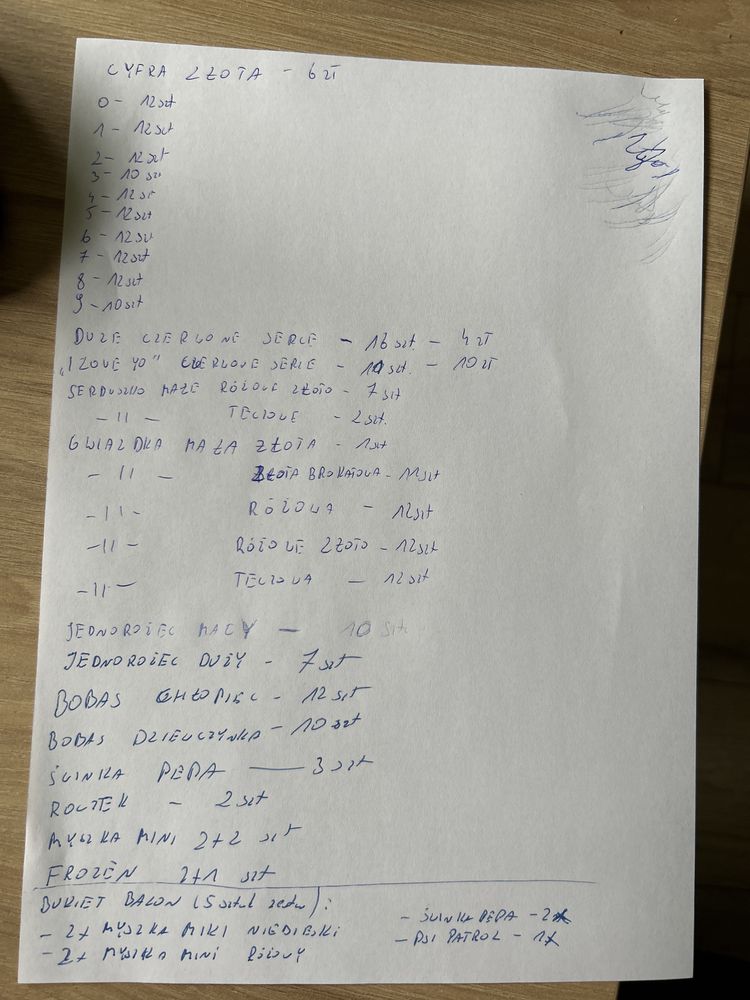 CYFRA ZŁOTA - 6 zł
0 - 12 szt
1 - 12 szt
2 - 12 szt
3 - 10 szt
4 - 12 szt
5 - 12 szt
6 - 12 szt
7 - 12 szt
8 - 12 szt
9 - 10 szt
DUŻE CZERWONE SERCE - 16 szt. - 4 zł
"I LOVE YO" CZERWONE SERCE - szt. - 10 zł
SERDUSZKO MAŁE RÓŻOWE ZŁOTO - 7 szt
- 11 - TĘCZOWE - 2 szt.
GWIAZDKA MAŁA ZŁOTA - 1 szt
- 11 - ZŁOTA BROKATOWA - 11 szt
- 11 - RÓŻOWA - 12 szt
- 11 - RÓŻOWE ZŁOTO - 12 szt
- 11 - TĘCZOWA - 12 szt
JEDNOROŻEC MAŁY - 10 szt
JEDNOROŻEC DUŻY - 7 szt
BOBAS CHŁOPIEC - 12 szt
BOBAS DZIEWCZYNKA - 10 szt
ŚWINKA PEPA - 3 szt
ROCZEK - 2 szt
MYSZKA MINI 2+2 szt
FROZEN 2+1 szt
BUKIET BALON (5 sztuk ):
- 2x MYSZKA MIKI NIEBIESKI
- 2x MYSZKA MINI RÓŻOWY
- ŚWINKA PEPA - 2x
- PSI PATROL - 1x